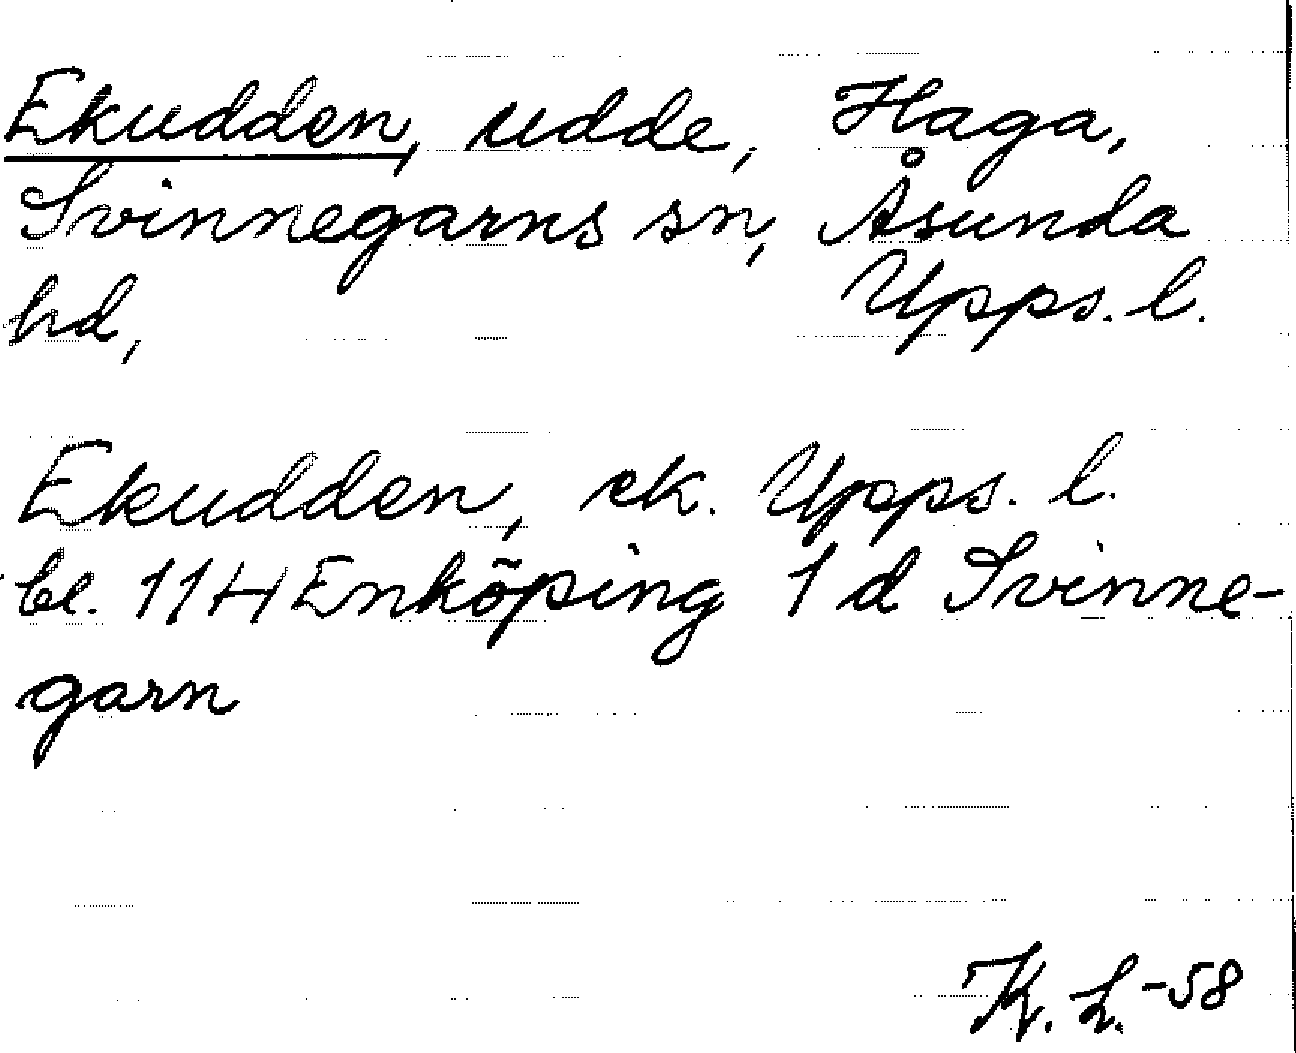 Ekudden, udde, Haga,
Svinnegarns sn, Åsunda
hd, Upps. l.
Ekudden, ek. Upps. l.
bl. 11H Enköping 1 d Svinne-
garn
K. L. -58